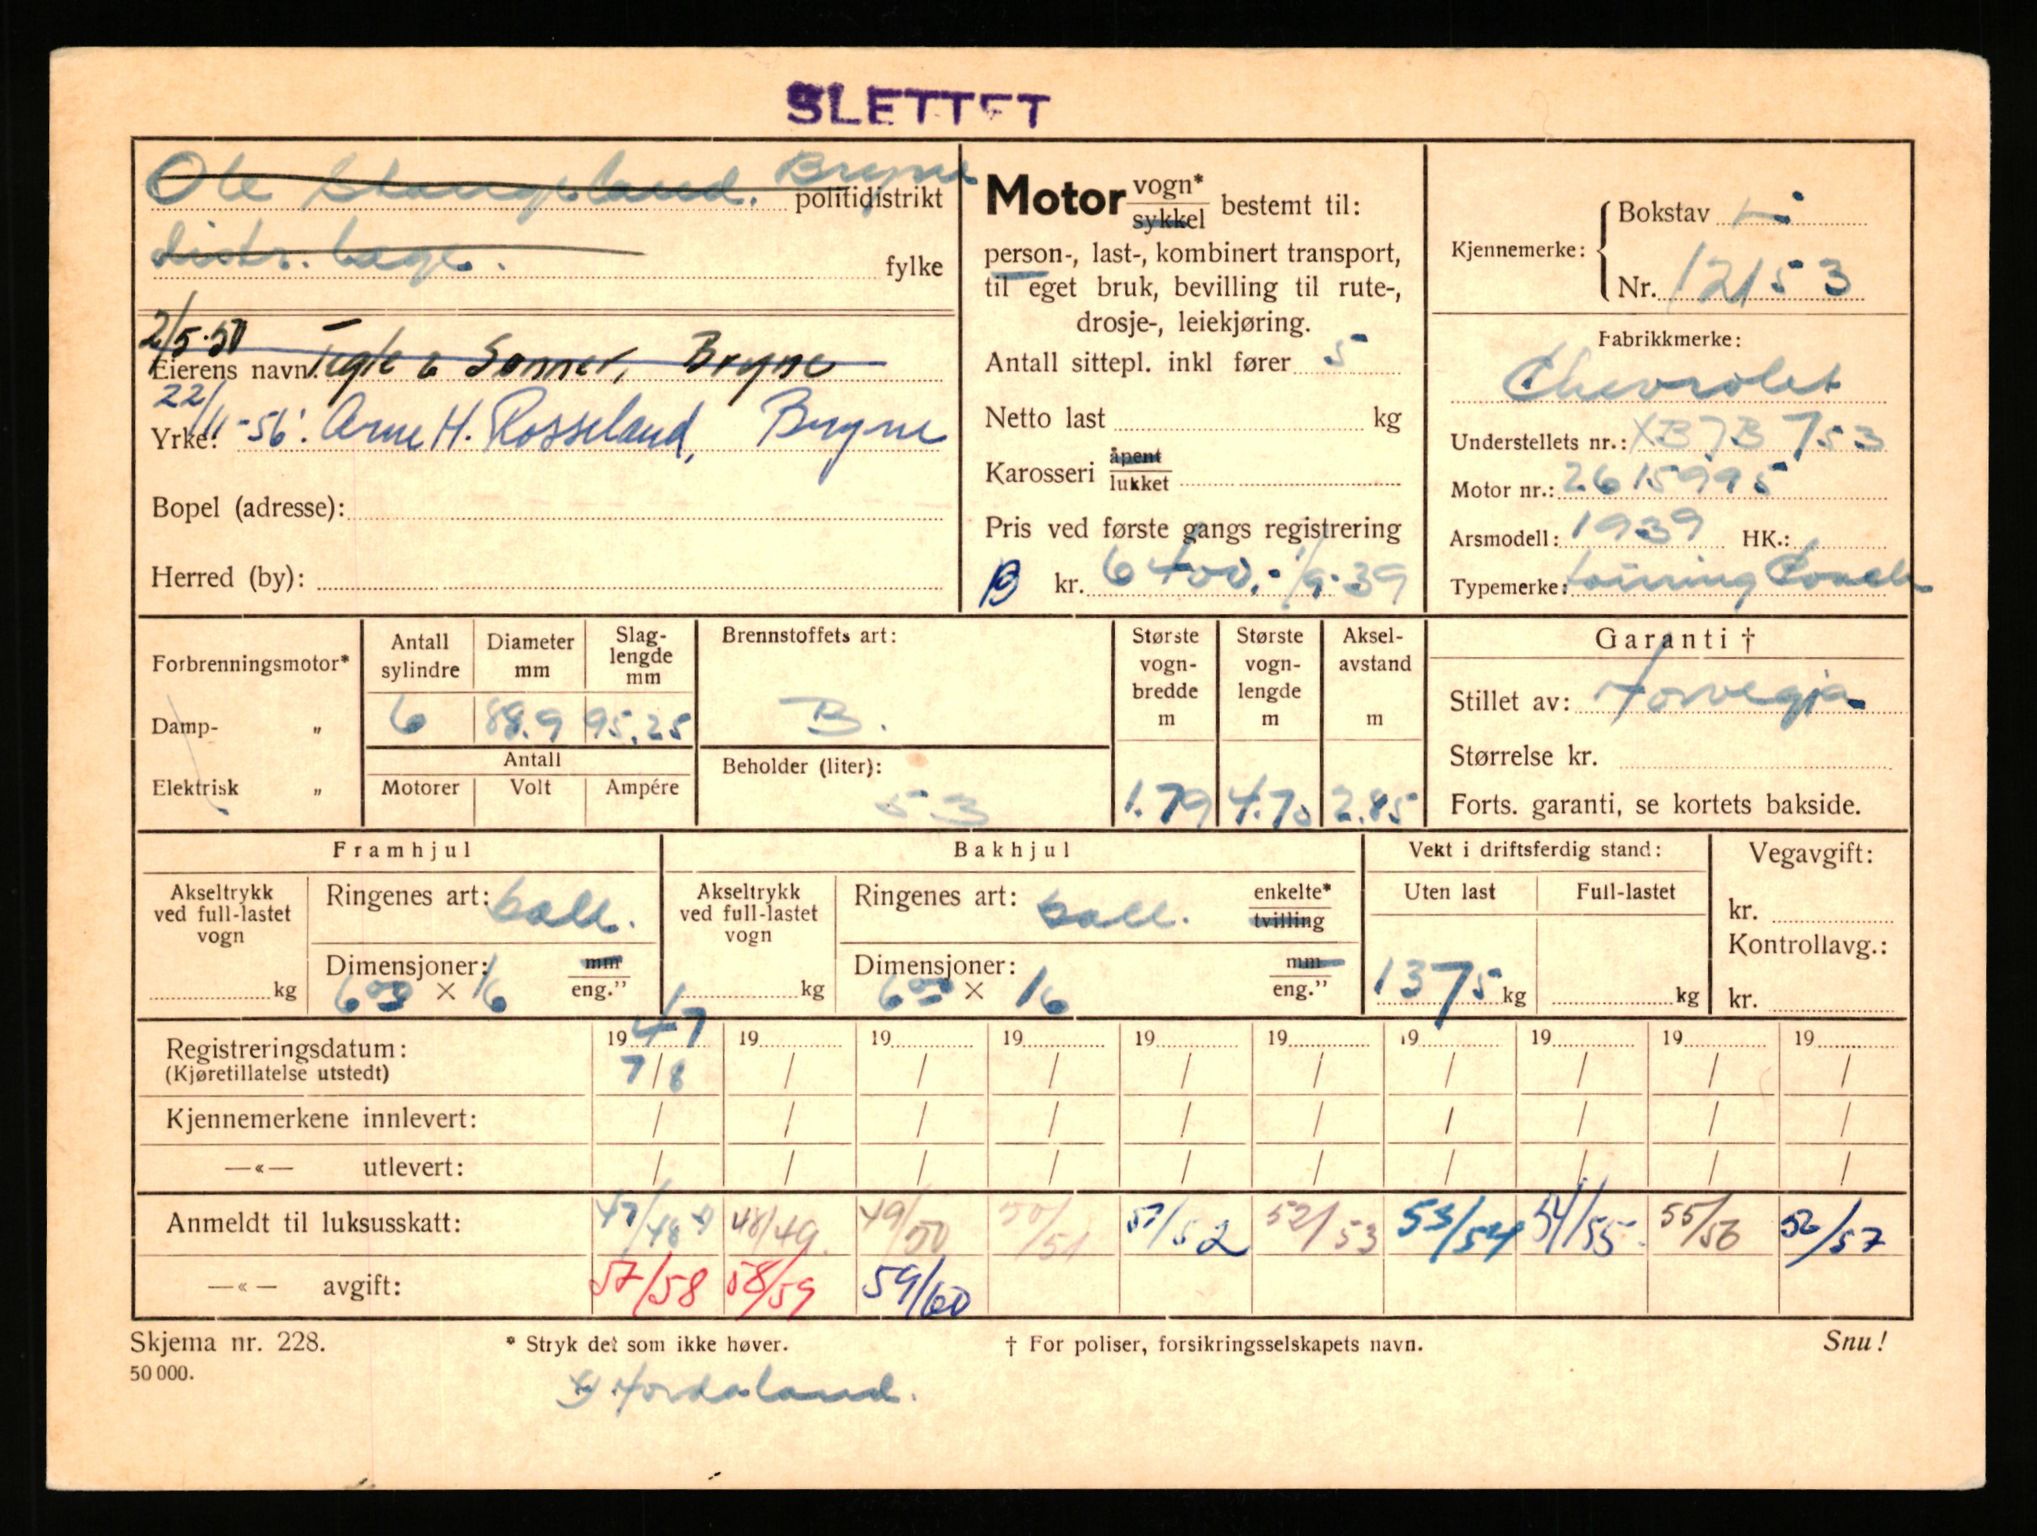 SLETTET
Ole Slangeland. Bryne politidistrikt
distr. læge. fylke
2/5.50 Tegle & Sønner, Bryne
Eierens navn:
22/11-56. Arne H. Rosseland, Bryne
Yrke:
Bopel (adresse):
Herred (by):
Motor vogn* sykkel bestemt til:
person-, last-, kombinert transport,
til eget bruk, bevilling til rute-,
drosje-, leiekjøring.
Antall sittepl. inkl fører 5
Netto last kg
Karosseri åpent lukket
Pris ved første gangs registrering
B kr. 6400.- 1/9-39
Kjennemerke: Bokstav L
Nr. 12153
Fabrikkmerke:
Chevrolet
Understellets nr.: XB7B753
Motor nr.: 2615995
Årsmodell: 1939 HK.:
Typemerke: touring Coach
Forbrenningsmotor*
Damp- „
Elektrisk „
Antall sylindre 6
Diameter mm 88.9
Slag-lengde mm 95.25
Antall
Motorer Volt Ampére
Brennstoffets art:
B.
Beholder (liter):
53
Største vogn-bredde m 1.79
Største vogn-lengde m 4.70
Aksel-avstand m 2.85
Garanti †
Stillet av: Norvegia
Størrelse kr.
Forts. garanti, se kortets bakside.
Framhjul
Akseltrykk ved full-lastet vogn kg
Ringenes art: ball.
Dimensjoner: mm eng.”
6⁰⁰ × 16
Bakhjul
Akseltrykk ved full-lastet vogn kg
Ringenes art: ball. enkelte* tvilling
Dimensjoner: mm eng.”
6⁰⁰ × 16
Vekt i driftsferdig stand:
Uten last Full-lastet
1375 kg kg
Vegavgift:
kr.
Kontrollavg.:
kr.
Registreringsdatum: 1947 19 19 19 19 19 19 19 19 19
(Kjøretillatelse utstedt) 7/8 / / / / / / / / /
Kjennemerkene innlevert: / / / / / / / / / /
—«— utlevert: / / / / / / / / / /
Anmeldt til luksusskatt: 47/48 x) 48/49. 49/50 50/51 51/52 52/53 53/54 54/55 55/56 56/57
—«— avgift: 57/58 58/59 59/60
Skjema nr. 228. * Stryk det som ikke høver. † For poliser, forsikringsselskapets navn. Snu!
50 000.
x) Hordaland.